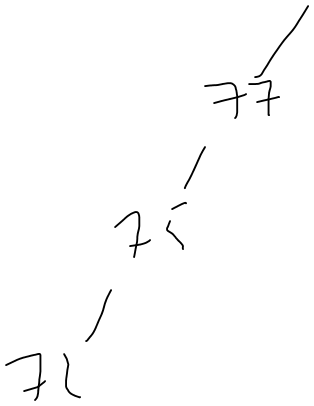 77
75
72